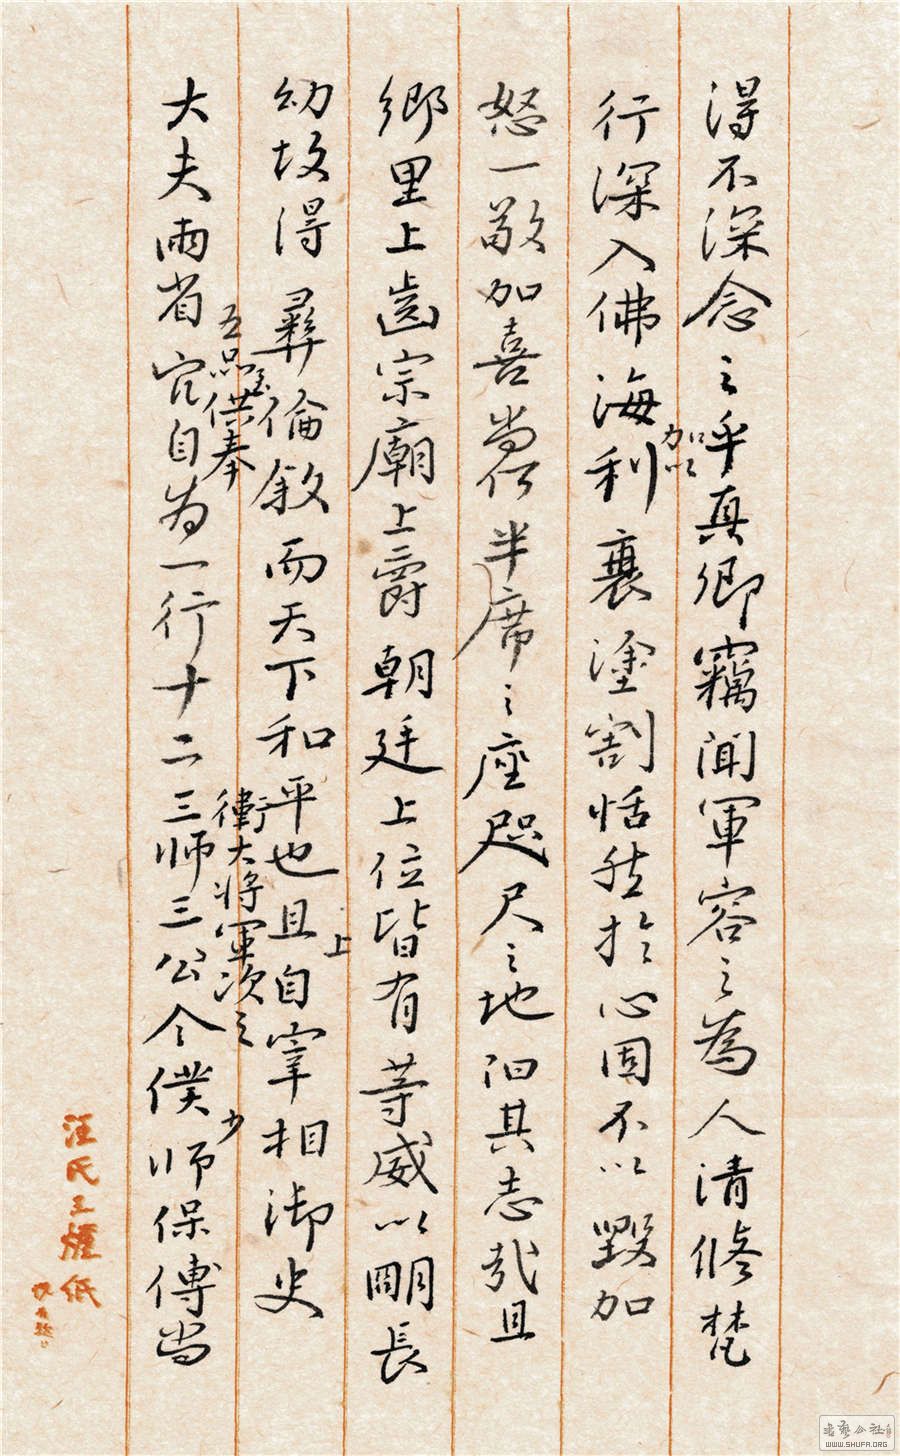 得不深念之乎真卿竊聞軍容之為人清修梵
行深入佛海加以利衰塗割恬然於心固不以毀加
怒一敬加喜尚何半席之座咫尺之地汩其志哉且
鄉里上齒宗廟上爵朝廷上位皆有等威以明長
幼故得彝倫敘而天下和平也且上自宰相御史
大夫兩省五品供奉官自為一行十二衛大將軍次之三師三公令僕少師保傅尚
汪氏
紙
WWW.SHUFA.ORG